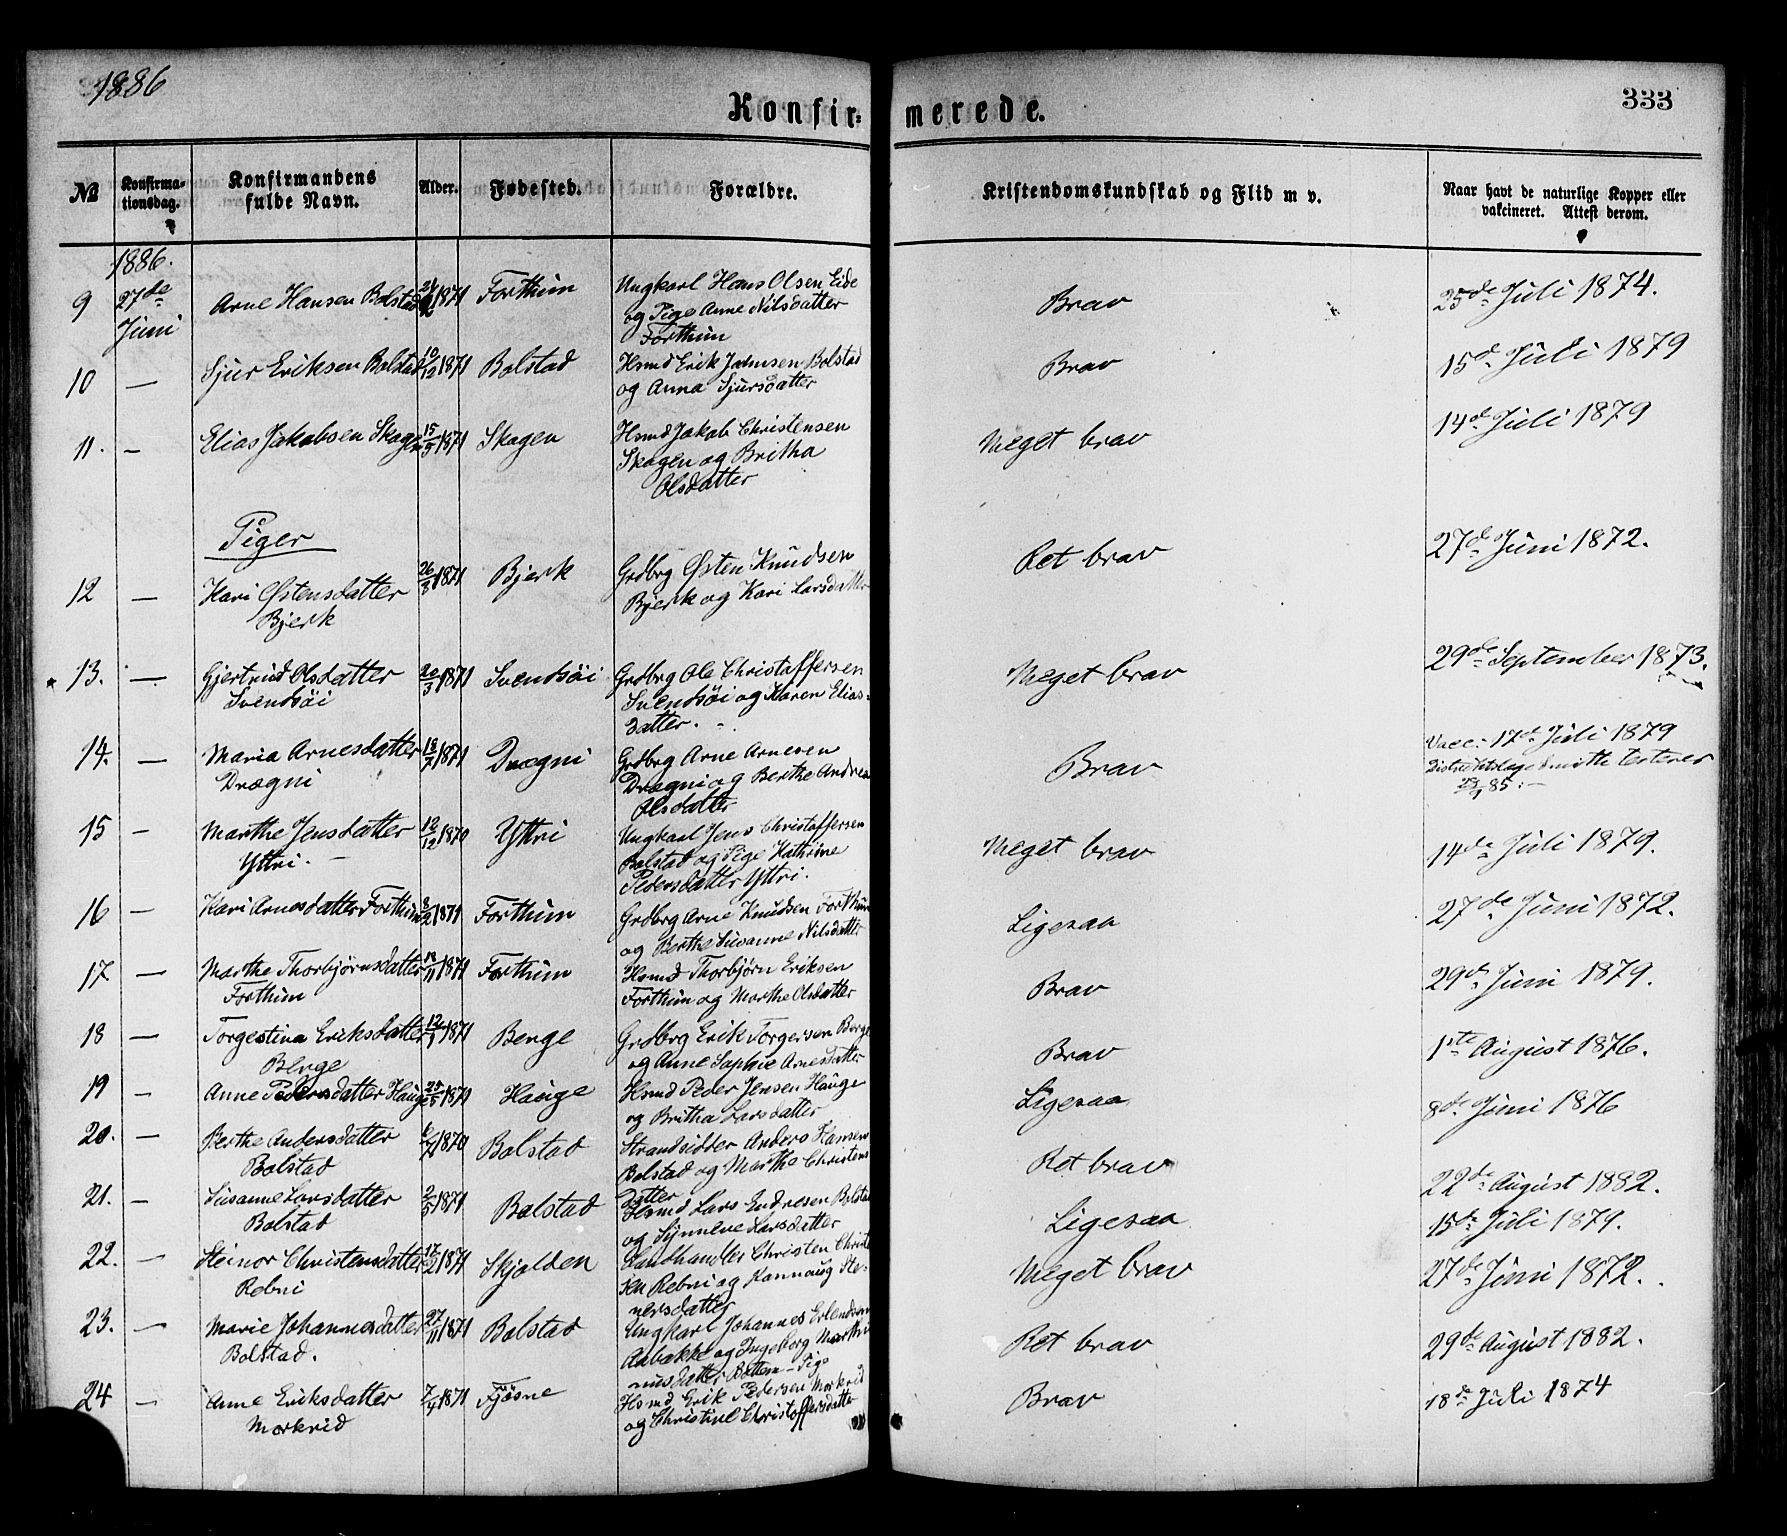 1886
333
Konfir=
merede.
№
Konfirma-
tionsdag.
Konfirmandens
fulde Navn.
Alder.
Fødested.
Forældre.
Kristendomskundskab og Flid m v.
Naar havt de naturlige Kopper eller
vakcineret. Attest derom.
1886.
9 27de Arne Hansen Bolstad 1871 Forthun Ungkarl Hans Olsen Eide Brav 25de Juli 1874.
Juni og Pige Anne Nilsdatter
Forthun
10 — Sjur Eriksen Bolstad 10/12 1871 Bolstad Hsmd Erik Johnsen Bolstad Brav 15de Juli 1879
og Anna Sjursdatter
11. — Elias Jakobsen Skagen 15/5 1871 Skagen Hsmd Jakob Christensen Meget brav 14de Juli 1879
Skagen og Britha
Olsdatter
Piger
12 — Kari Østensdatter 26/3 1871 Bjerk Grdbrg Østen Knudsen Ret brav 27de Juni 1872.
Bjerk Bjerk og Kari Larsdatter
13. — Gjertrud Olsdatter 20/3 1871 Svendsøi Grdbrg Ole Christaffersen Meget brav 29de September 1873.
Svendsøi Svendsøi og Karen Elias-
datter.
14. — Maria Arnesdatter 18/7 1871 Drægni Grdbrg Arne Arnesen Brav Vacc. 17de Juli 1879
Drægni Drægni og Berthe Andrea Distriktslæge
Olsdatter 85.
15 — Marthe Jensdatter 12/12 1870 Yttri Ungkarl Jens Christaffersen Meget brav 14de Juli 1879.
Yttri. Bolstad og Pige Kathrine
Pedersdatter Yttri.
16 — Kari Arnesdatter Forthun 8/2 1871 Forthun Grdbrg Arne Knudsen Forthun Ligesaa 27de Juni 1872.
og Berthe Susanne Nilsdatter
17 — Marthe Thorbjørnsdatter 18/11 1871 Forthun Hsmd Thorbjørn Eriksen Brav 29de Juni 1879.
Forthun Forthun og Marthe Olsdatter
18 — Torgestina Eriksdatter 1871 Berge Grdbrg Erik Torgersen Berge Brav 1ste August 1876.
Berge og Anne Sophie Arnesdatter
19 — Anne Pedersdatter Hauge 25/5 1871 Hauge Hsmd Peder Jensen Hauge Ligesaa 8de Juni 1876
og Britha Larsdatter
20. — Berthe Andersdatter 1870 Bolstad Strandsidder Anders Hansen Ret brav 22de August 1882.
Bolstad Bolstad og Marthe Christens
datter
21. — Susanne Larsdatter 2/5 1871 Bolstad Hsmd Lars Endresen Bolstad Ligesaa 15de Juli 1879.
Bolstad og Synneve Larsdatter
22. — Steinor Christensdatter 17/2 1871 Skjolden Landhandler Christen Christen Meget brav 27de Juni 1872.
Rebni sen Rebni og Kannaug Stei-
nersdatter
23. — Marie Johannesdatter 27/11 1871 Bolstad Ungkarl Johannes Erlendsen Ret brav 29de August 1882.
Bolstad. Aabække og Ingeborg Marthi
nusdatter Bottem – Pige
24 — Anne Eriksdatter 7/4 1871 Fjøsne Hsmd Erik Pedersen Morkrid Brav 18de Juli 1874
Morkrid og Christine Christoffersdatter